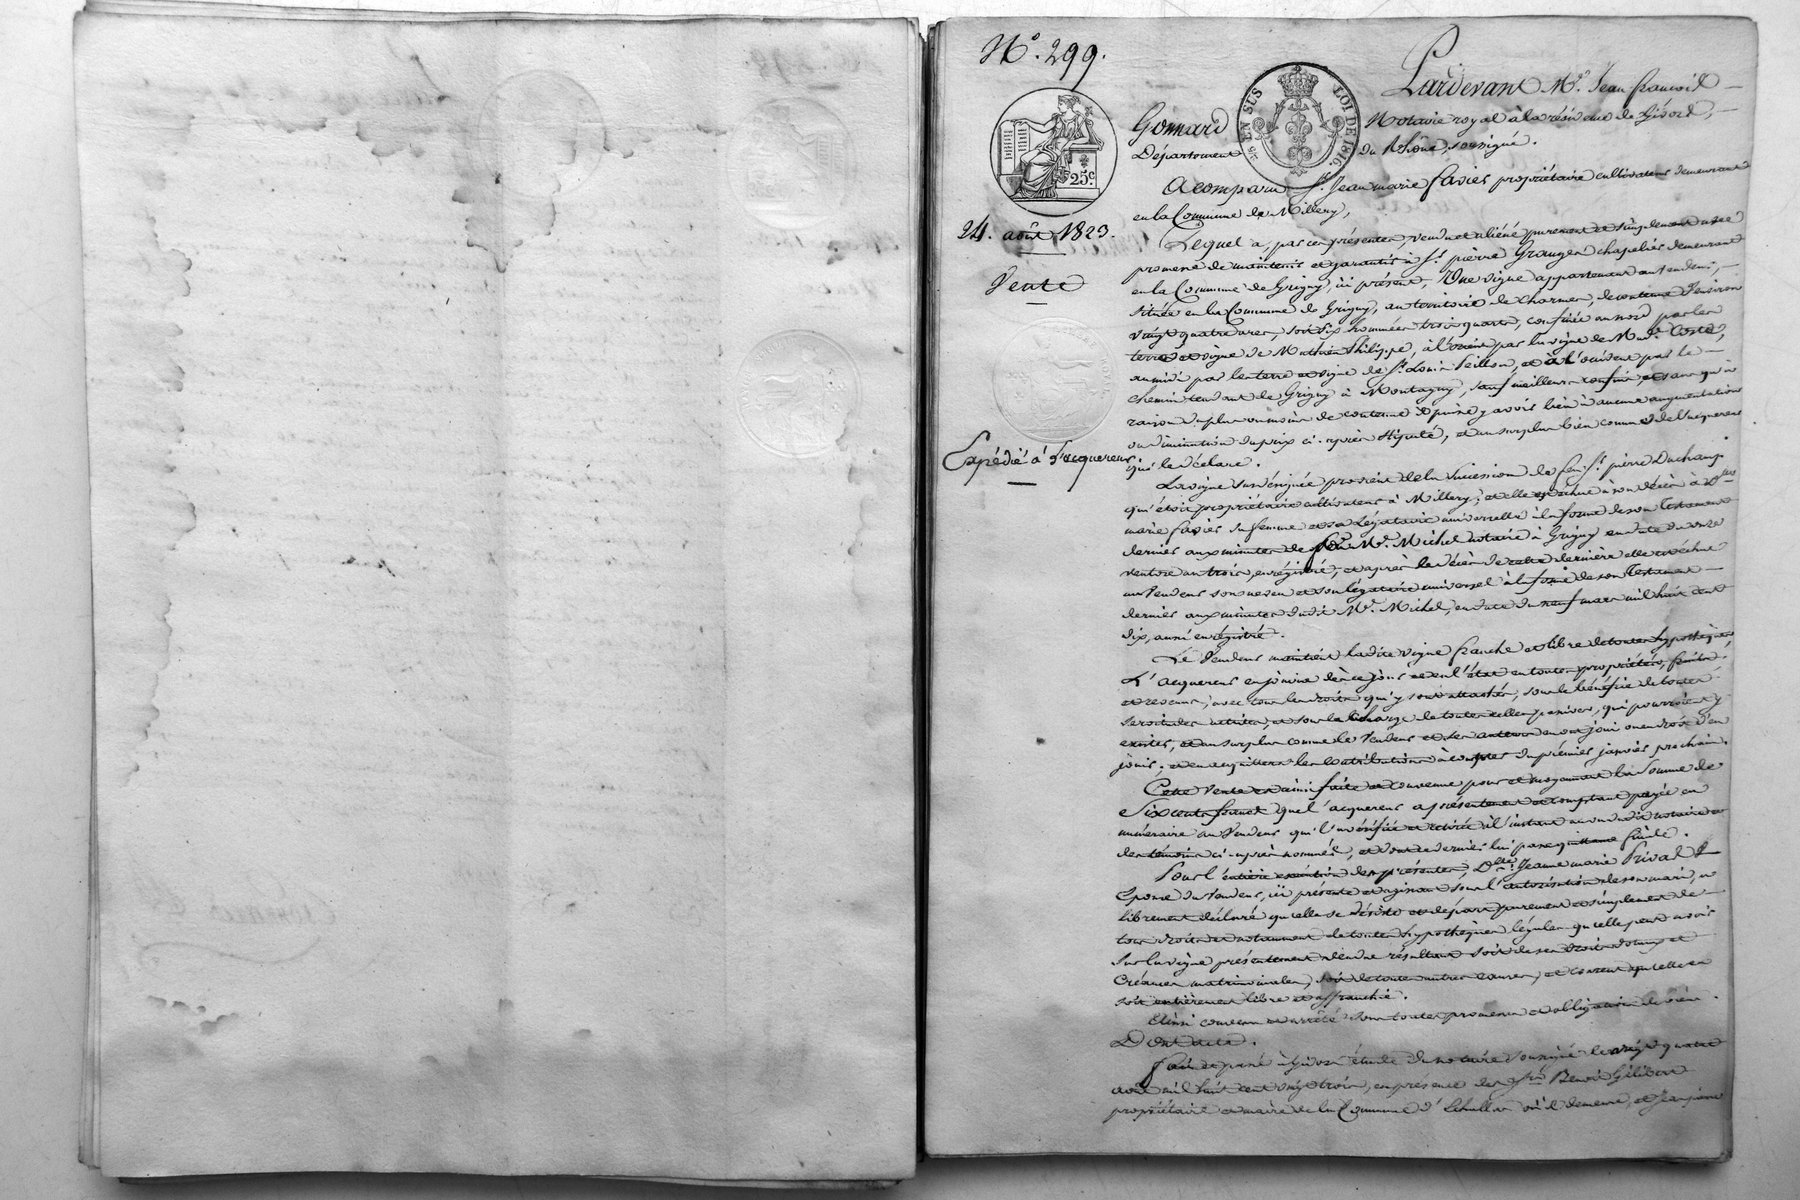 N.° 299.
25.c
24. août 1823.
Vente
Expédié à l'acquereur.
EN SUS LOI DE 1816.
Pardevant M.e Jean françois
Gonnard Notaire royal à la résidence de Givors,
Département du Rhône, soussigné.
A comparu S.r Jean marie favier propriétaire cultivateur demeurant
en la Commune de Millery,
Lequel a, par ces présentes, vendu et aliéné purement et simplement avec
promesse de maintenir et garantir à S.r pierre Granger chapelier demeurant
en la Commune de Grigny, ici présent, Une vigne appartenant au vendeur,
située en la Commune de Grigny, au territoire de charmes, de contenue d'environ
vingt quatre ares, soit six hommées trois quarts, confinée au nord par les
terre et vigne de Mathieu Philippe, à l'orient par la vigne de Mad.e Coste,
au midi par les terre et vigne de S.r Louis Seillon, et à l'occident par le
chemin tendant de Grigny à Montagny, sauf meilleurs confins, et sans qu'à
raison du plus ou moins de contenue il puisse y avoir lieu à aucune augmentation
ou diminution du prix ci-après stipulé, et au surplus bien connue de l'acquereur
qui le déclare.
La vigne sus désignée provient de la succession de feu S.r pierre Duchamp
qui étoit propriétaire cultivateur à Millery; et elle est échue à son décès à D.me
marie favier sa femme et sa légataire universelle à la forme de son Testament
dernier aux minutes de feu M.e Michel notaire à Grigny en date du onze
ventose an trois, enrégistré; et après le décès de cette dernière elle est échue
au Vendeur son neveu et son légataire universel à la forme de son Testament
dernier aux minutes dudit M.e Michel, en date du neuf mars mil huit cent
dix, aussi enrégistré.
Le Vendeur maintient ladite vigne franche et libre de toutes hypothèques,
L'acquereur en jouira dès ce jour et en l'état en toutes propriétés, fruits
et revenus, avec tous les droits qui y sont attachés, sous le bénéfice de toutes
servitudes actives, et sous la charge de toutes celles passives, qui pourroient y
exister, et au surplus comme le Vendeur et ses auteurs en ont joui ou eu droit d'en
jouir; et en acquittera les contributions à compter du premier janvier prochain.
Cette Vente est ainsi faite et convenue pour et moyennant la somme de
Six cents francs que l'acquereur a présentement et comptant payée en
numéraire au Vendeur qui l'a vérifiée et retirée à l'instant au vu dudit notaire et
des témoins ci-après nommés, et dont ce dernier lui passe quittance finale.
Pour l'entière exécution des présentes, D.lle Jeanne marie Privat
Epouse du Vendeur, ici présente et agissant sous l'autorisation de son mari, a
librement déclaré qu'elle se désiste et départ purement et simplement de
tous droits et notamment de toutes hypothèques légales qu'elle peut avoir
sur la vigne présentement vendue résultant soit de ses droits dotaux et
créances matrimoniales, soit de toute autres causes, et consent qu'elle en
soit entièrement libre et affranchie.
Ainsi convenu et arrêté sous toutes promesses et obligations de biens.
Dont acte.
fait et passé à Givors étude du notaire soussigné le vingt quatre
août mil huit cent vingt trois, en présence des S.rs Benoit Gilibert
propriétaire et maire de la Commune d'Echallas où il demeure, et Jean pierre